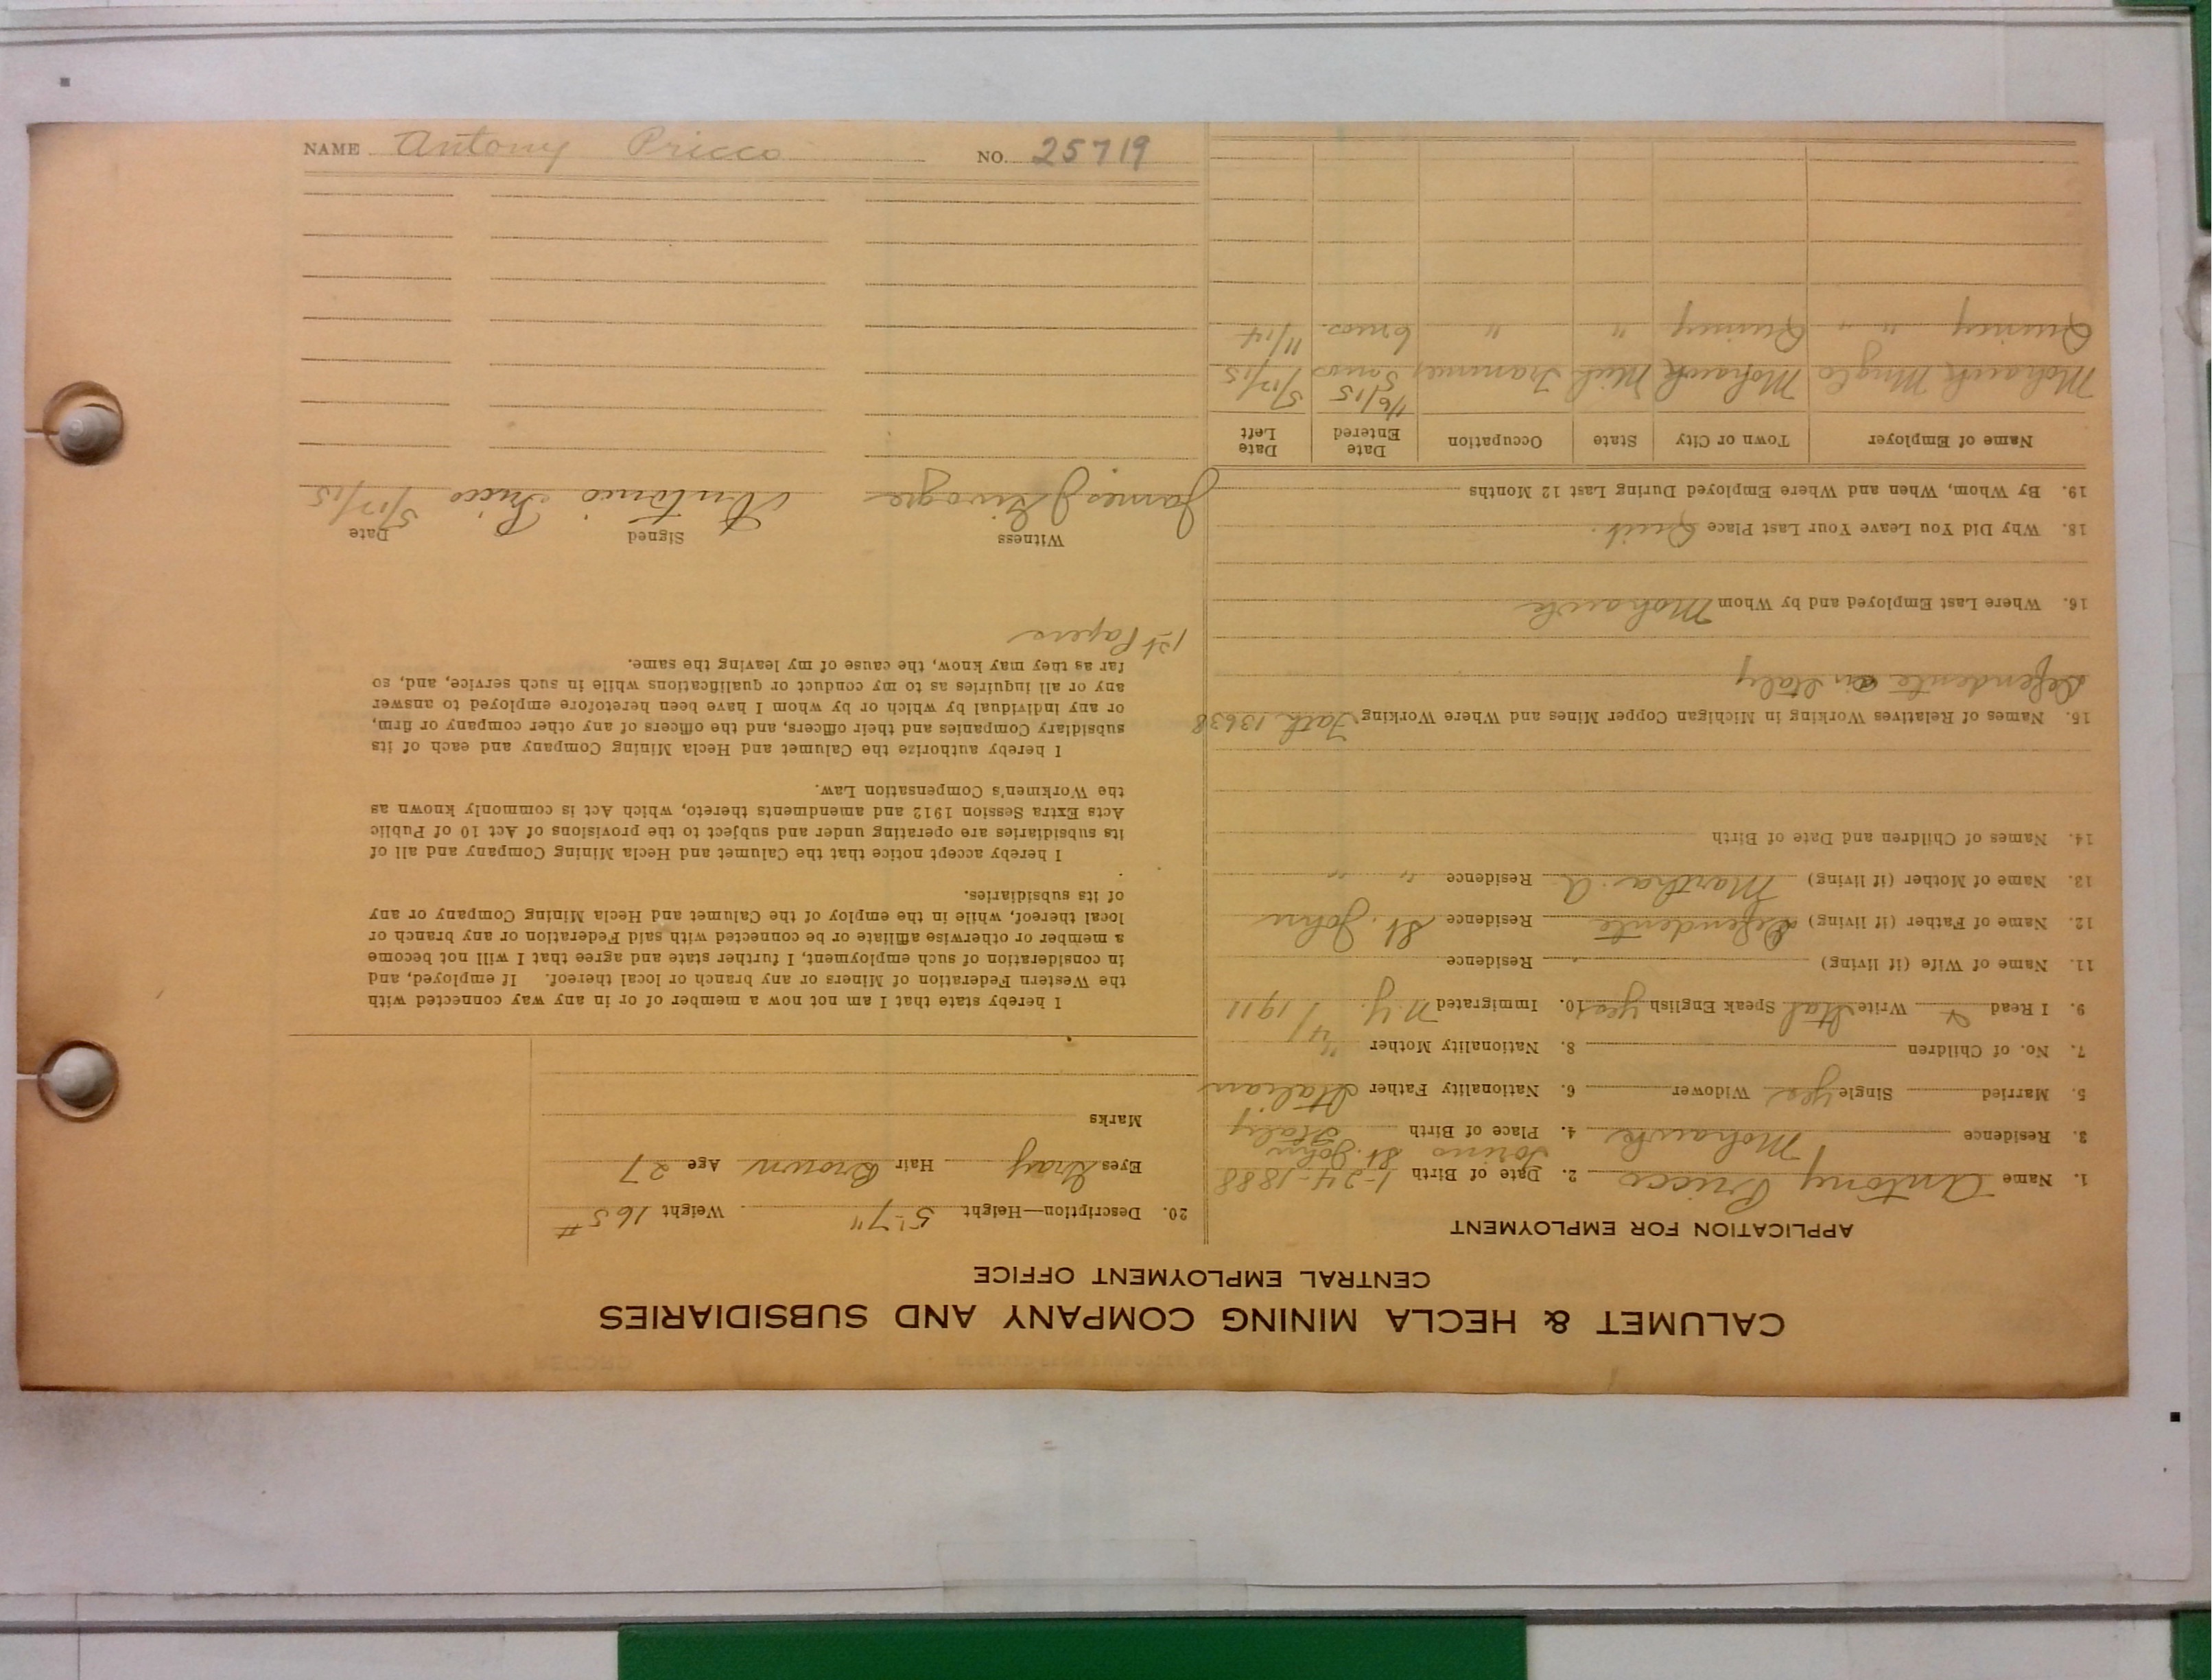 NAME Antony Pricco NO. 25719
CALUMET & HECLA MINING COMPANY AND SUBSIDIARIES
CENTRAL EMPLOYMENT OFFICE
APPLICATION FOR EMPLOYMENT
1. Name Antony Pricco 2. Date of Birth 1-24-1888
Torino St. John
3. Residence Mohawk 4. Place of Birth Italy
5. Married Single yes Widower 6. Nationality Father Italian
7. No. of Children 8. Nationality Mother "
9. I Read & Write Ital Speak English yes 10. Immigrated N.Y. 4/1911
11. Name of Wife (if living) Residence
12. Name of Father (if living) Defendente Residence St. John
13. Name of Mother (if living) Martha. a Residence " "
14. Names of Children and Date of Birth
15. Names of Relatives Working in Michigan Copper Mines and Where Working Fath. 13638
Defendente in Italy
16. Where Last Employed and by Whom Mohawk
18. Why Did You Leave Your Last Place Quit.
19. By Whom, When and Where Employed During Last 12 Months
Name of Employer Town or City State Occupation Date Entered Date Left
Mohawk Mng Co Mohawk Mich Trammer 5 mos 5/12/15
Quincy " " Quincy " " 6 mos. 11/14
20. Description—Height 5'-7" Weight 165#
Eyes Gray Hair Brown Age 27
Marks
I hereby state that I am not now a member of or in any way connected with
the Western Federation of Miners or any branch or local thereof. If employed, and
in consideration of such employment, I further state and agree that I will not become
a member or otherwise affiliate or be connected with said Federation or any branch or
local thereof, while in the employ of the Calumet and Hecla Mining Company or any
of its subsidiaries.
I hereby accept notice that the Calumet and Hecla Mining Company and all of
its subsidiaries are operating under and subject to the provisions of Act 10 of Public
Acts Extra Session 1912 and amendments thereto, which Act is commonly known as
the Workmen's Compensation Law.
I hereby authorize the Calumet and Hecla Mining Company and each of its
subsidiary Companies and their officers, and the officers of any other company or firm,
or any individual by which or by whom I have been heretofore employed to answer
any or all inquiries as to my conduct or qualifications while in such service, and, so
far as they may know, the cause of my leaving the same.
1st Papers
Witness Signed Date
James J Antonio Pricco 5/12/15